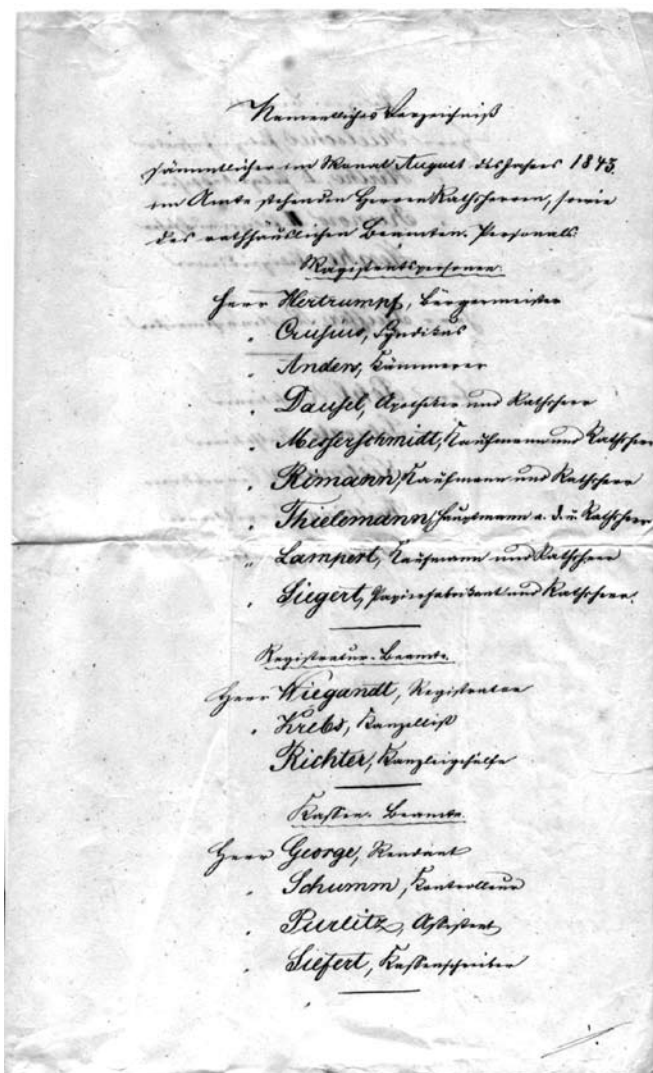 Namentliches Verzeichniß
sämmtlicher im Monat August des Jahres 1843.
im Amte stehenden Herren Rathsherren, sowie
des rathhäuslichen Beamten-Personals.
Magistratspersonen.
Herr Hertrumpf, Bürgermeister
" Crusius, Syndikus
" Anders, Kämmerer
" Dausel, Apotheker und Rathsherr
" Messerschmidt, Kaufmann und Rathsherr
" Rimann, Kaufmann und Rathsherr
" Thielemann, Hauptmann a. d. u. Rathsherr,
" Lampert, Kaufmann und Rathsherr
" Siegert, Papierfabrikant und Rathsherr.
Registratur-Beamte.
Herr Wiegandt, Registrator
" Krebs, Kanzellist
Richter, Kanzleigehülfe
Kassen-Beamte.
Herr George, Rendant
" Schumm, Kontrolleur
" Purlitz, Assistent
" Siefert, Kassenschreiber